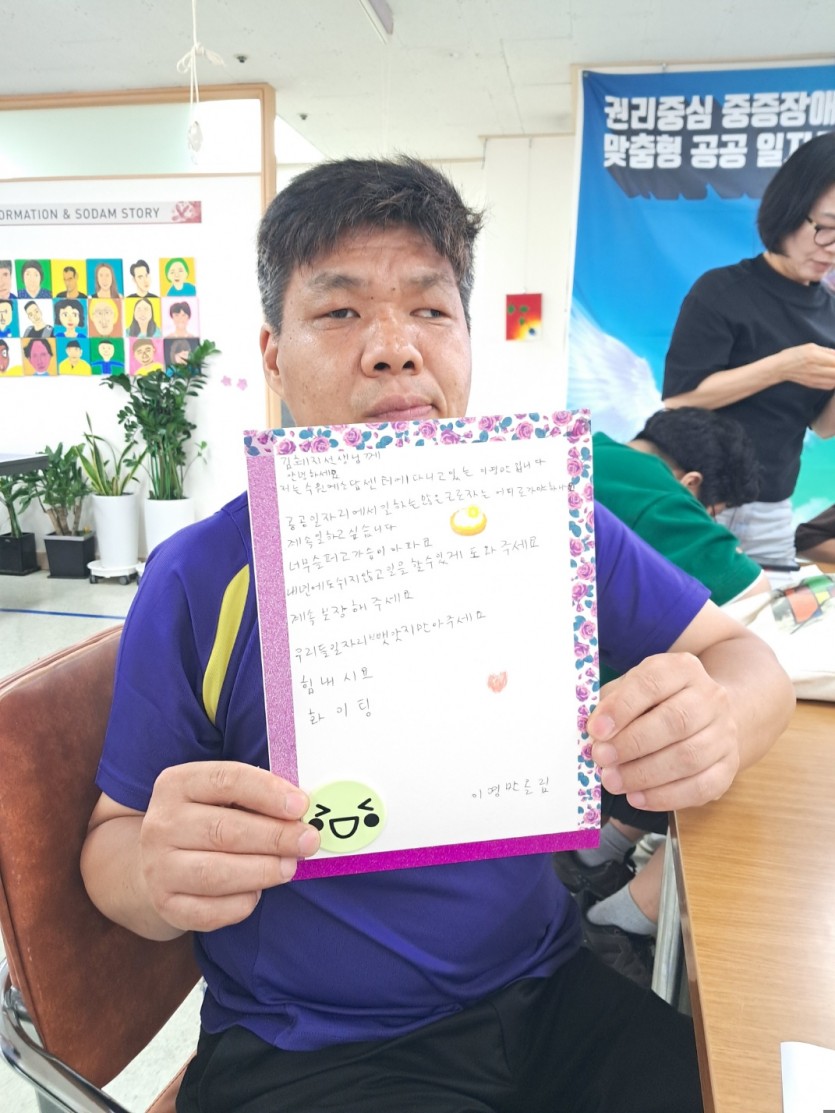 권리중심 중증장애
맞춤형 공공 일자
ORMATION & SODAM STORY
김혜지선생님께
안녕하세요
저는수원에소담센터에다니고있는 이영만입니다
공공일자리에서일하는많은근로자는 어디로가야하나요
제속일하고싶습니다
너무슬퍼고가슴이아파요
내년에도쉬지않고일을할수있게 도와주세요
계속일장해주세요
우리들일자리 지만아주세요
힘내시요
화이팅
이영만올림